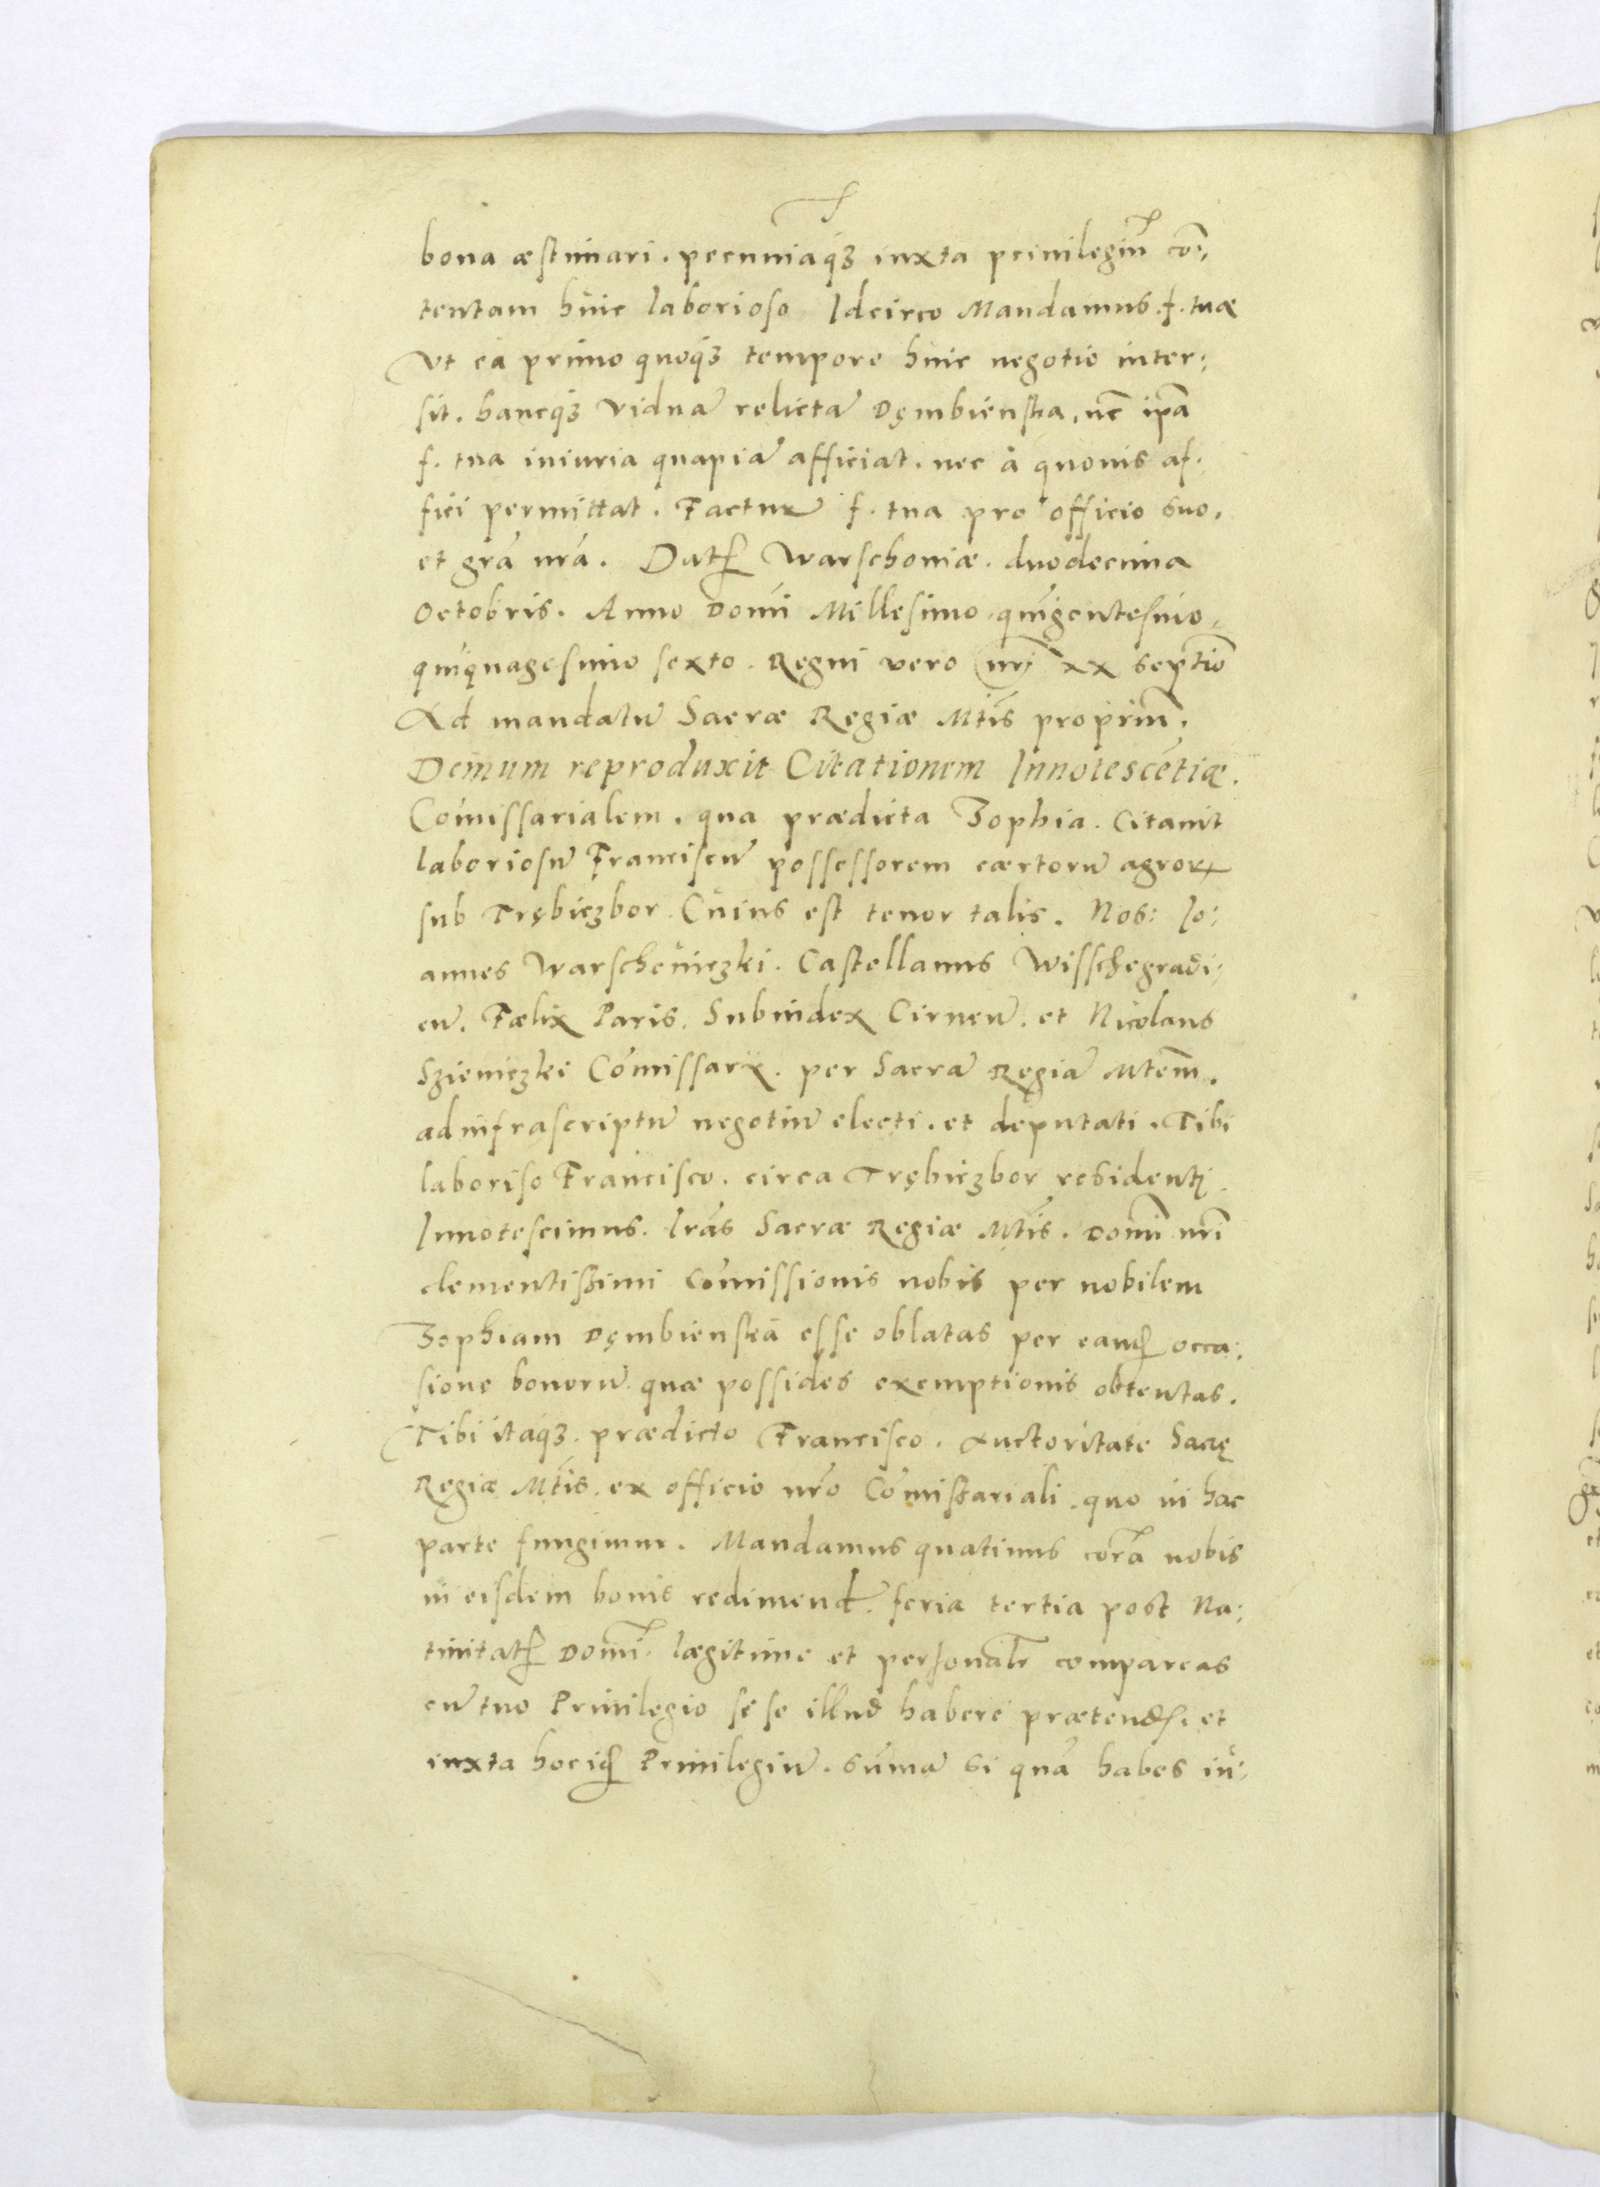 bona æstimari. pecuniaq3 iuxta privilegiū cō:
tentam huic laborioso Idcirco Mandamus. f. tuæ
Vt ea primo quoq3 tempore huic negotio inter:
sit. hancq3 viduā relictā Dęmbienska, nē ipā
f. tua iniuria quapiā afficiat. nec à quovis af:
fici permittat. Factur f. tua pro officio suo.
et grā nrā. Dat Warschoviæ. duodecima
Octobris. Anno Domī Millesimo quīgentesimo,
quīquagesimo sexto. Regni vero nrī xx septīo
Ad mandatū Sacræ Regiæ Mtīs propriū.
Demum reproduxit Citationem Innotescētiæ.
Comissarialem. qua prædicta Zophia. Citavit
laboriosū Franciscū possessorem cærtorū agror
sub Trębiczbor. Cuius est tenor talis. Nos: Jo:
annes Warscheviczki. Castellanus Wisschegradi:
en. Fælix Paris. Subiudex Cirnen. et Nicolaus
Szieniczki Comissarii. per Sacrā Regiā Mtēm.
ad infrascriptū negotiū electi. et deputati. Tibi
laboriso Francisco. circa Trębiczbor residenti
Innotescimus. lrās Sacræ Regiæ Mtīs. Domī nrī
clementissimi Comissionis nobis per nobilem
Zophiam Dęmbienskā esse oblatas per eand occa:
sione bonorū quæ possides exemptionis obtentas.
Tibi itaq3. prædicto Francisco. Auctoritate Sacrę
Regiæ Mtīs. ex officio nrō Comissariali. quo in hac
parte fungimur. Mandamus quatinus corā nobis
in eisdem bonis redimend. feria tertia post Na:
tivitat Domī. lægitime et personalr compareas
cū tuo Privilegio si se illud habere prætend. et
iuxta hoc id Privilegiū. sūmā si quā habes in: